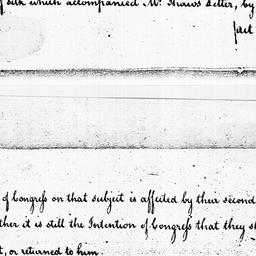 silk which accompanied Mr. Shaws Letter, by
of Congress on that subject is affected by their second
ther it is still the Intention of Congress that they
, or returned to him.